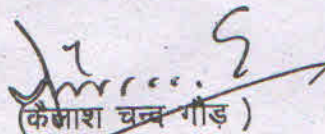 (कैलाश चन्द्र गौड़ )